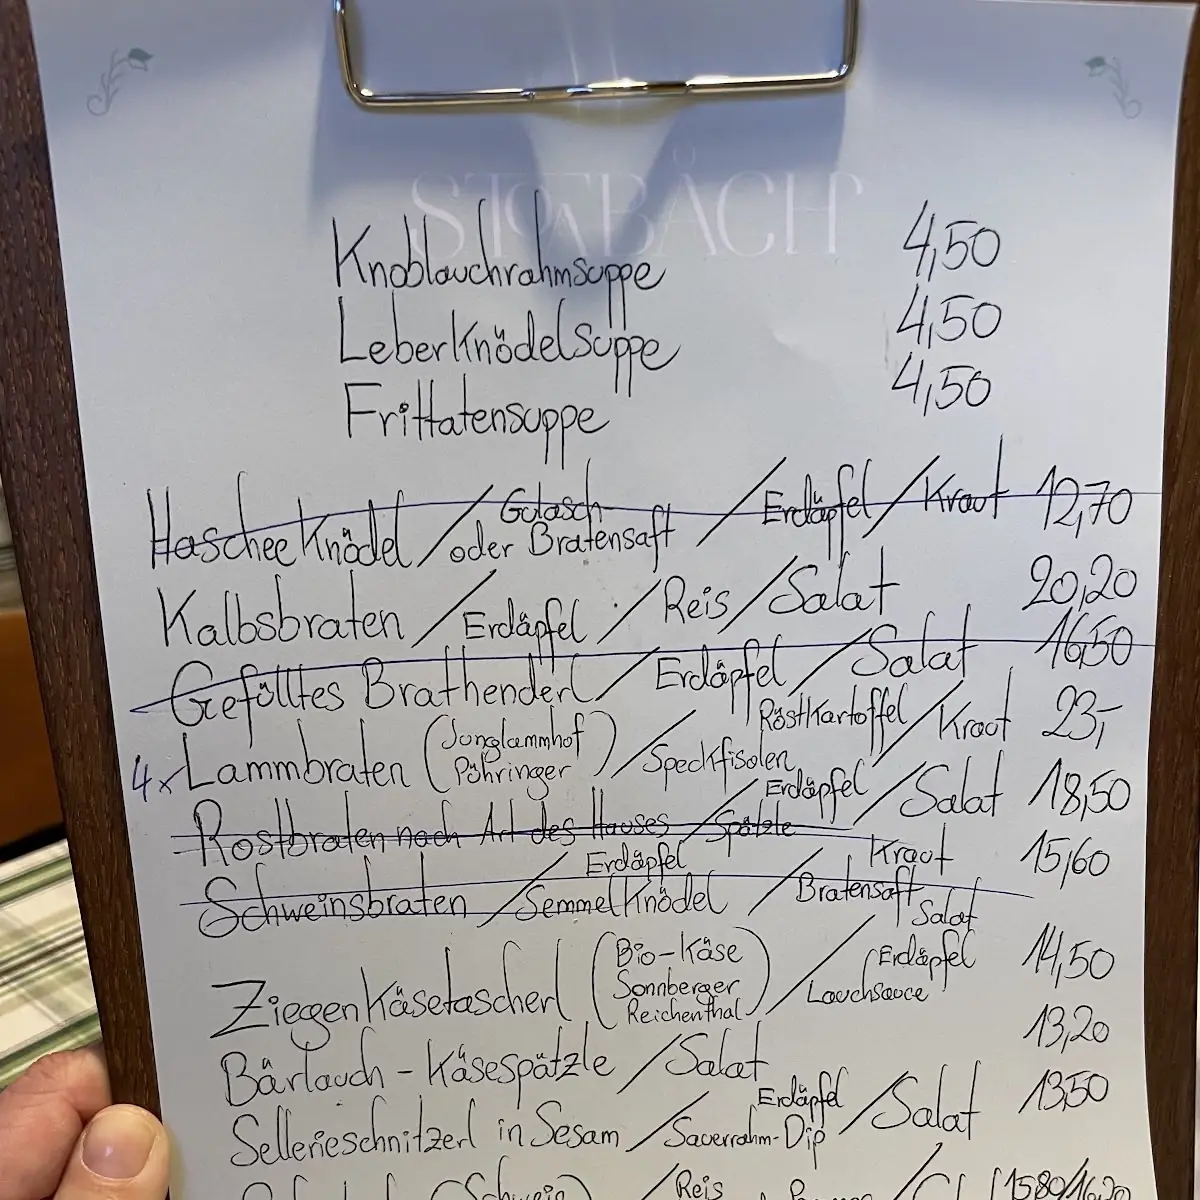 STOABÅCH
Knoblauchrahmsuppe 4,50
Leberknödelsuppe 4,50
Frittatensuppe 4,50
Haschee Knödel / Gulasch- oder Bratensaft / Erdäpfel / Kraut 12,70
Kalbsbraten / Erdäpfel / Reis / Salat 20,20
Gefülltes Brathenderl / Erdäpfel / Salat 16,50
4x Lammbraten (Junglammhof Pöhringer) / Speckfisolen / Röstkartoffel / Kraut 23,-
Rostbraten nach Art des Hauses / Spätzle Erdäpfel / Salat 18,50
Schweinsbraten / Erdäpfel Semmelknödel / Bratensaft Kraut Salat 15,60
Ziegenkäsetascherl (Bio-Käse Sonnberger Reichenthal) / Lauchsauce Erdäpfel 14,50
Bärlauch-Käsespätzle / Salat 13,20
Sellerieschnitzerl in Sesam / Sauerrahm-Dip Erdäpfel / Salat 13,50
(Schwein) / Reis 15,80/16,20